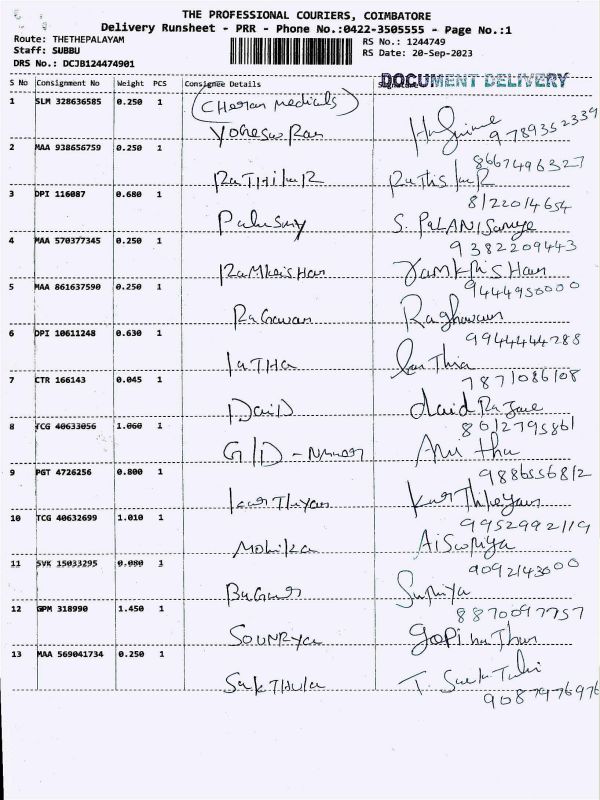 THE PROFESSIONAL COURIERS, COIMBATORE
Delivery Runsheet - PRR - Phone No.:0422-3505555 - Page No.:1
Route: THETHEPALAYAM
Staff: SUBBU
DRS No.: DCJB124474901
RS No.: 1244749
RS Date: 20-Sep-2023
S No Consignment No Weight PCS Consignee Details
DOCUMENT DELIVERY
1 SLM 328636585 0.250 1 (Cheran Medicals)
9789352339
2 MAA 938656759 0.250 1
8667496327
3 DPI 116087 0.680 1
8122014654
S. PALANISamy
4 MAA 570377345 0.250 1
9382209443
5 MAA 861637590 0.250 1
9444950000
Ragavan
6 DPI 10611248 0.630 1
9944444288
LATHA
7 CTR 166143 0.045 1
7871086108
DaviD
8 TCG 40633056 1.060 1
8612795861
Anitha
9 PGT 4726256 0.800 1
9886556812
10 TCG 40632699 1.010 1
9952992119
Monika
11 SVK 15033295 0.080 1
9092143000
Supriya
12 GPM 318990 1.450 1
8870097757
SOUNRya
13 MAA 569041734 0.250 1
9087976976